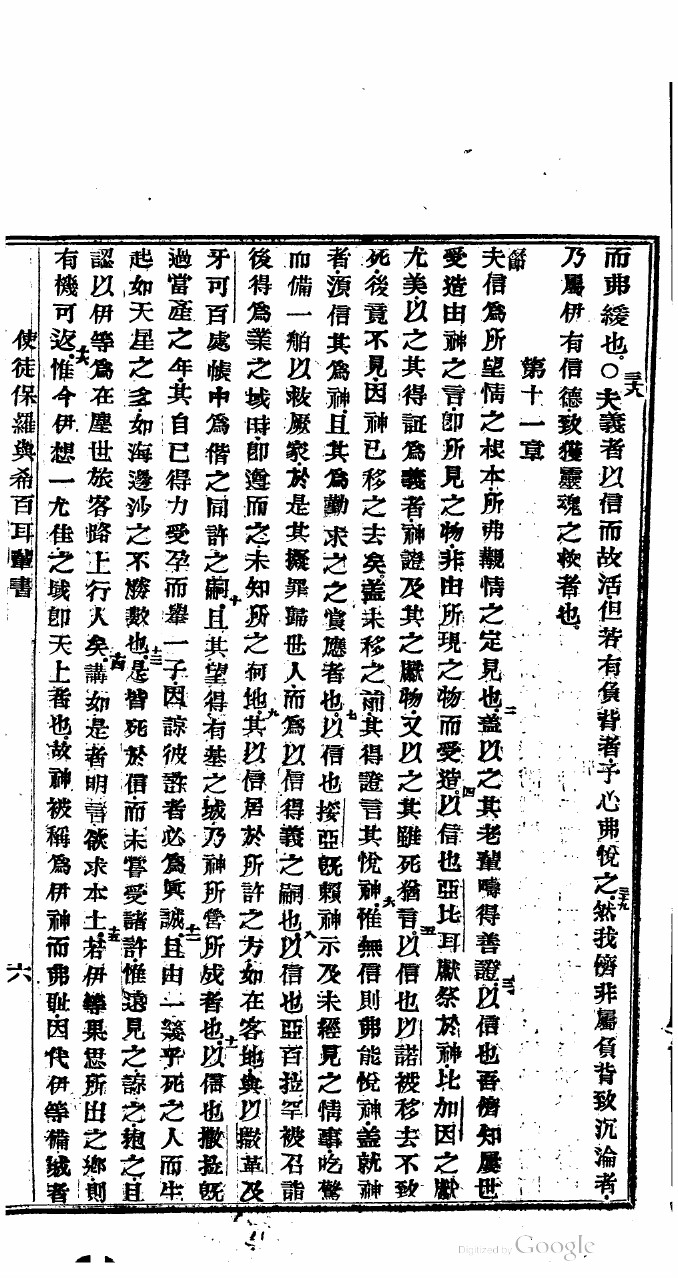 而弗緩也。○三八夫義者以信而故活但若有負背者予心弗悅之三九然我儕非屬負背致沉淪者
乃屬伊有信德致獲靈魂之救者也
第十一章
節夫信爲所望情之根本所弗觀情之定見也二蓋以之其老輩疇得善證三以信也吾儕知厥世
受造由神之言卽所見之物非由所現之物而受造四以信也亞比耳獻祭於神比加因之獻
尤美以之其得証爲義者神證及其之獻物又以之其雖死猶言五以信也以諾被移去不致
死後竟不見因神已移之去矣蓋未移之前其得證言其悅神六惟無信則弗能悅神蓋就神
者須信其爲神且其爲勤求之之賞應者也七以信也挼亞旣賴神示及未經見之情事吃驚
而備一船以救厥家於是其擬罪歸世人而爲以信得義之嗣也八以信也亞百拉罕被召詣
後得爲業之域時卽遵而之未知所之何地九其以信居於所許之方如在客地與以撒革及
牙可百處帳中爲偕之同許之嗣十且其望得有基之城乃神所營所成者也十一以信也撒拉旣
過當產之年其自己得力受孕而舉一子因諒彼許者必爲眞誠十二且由一幾乎死之人而生
起如天星之多如海邊沙之不勝數也十三是皆死於信而未嘗受諸許惟遠見之諒之抱之且
認以伊等爲在塵世旅客路上行人矣十四講如是者明言欲求本土十五若伊等果思所出之鄉則
有機可返十六惟今伊想一尤佳之域卽天上者也故神被稱爲伊神而弗耻因代伊等備城者
使徒保羅與希百耳輩書
六
Digitized by Google